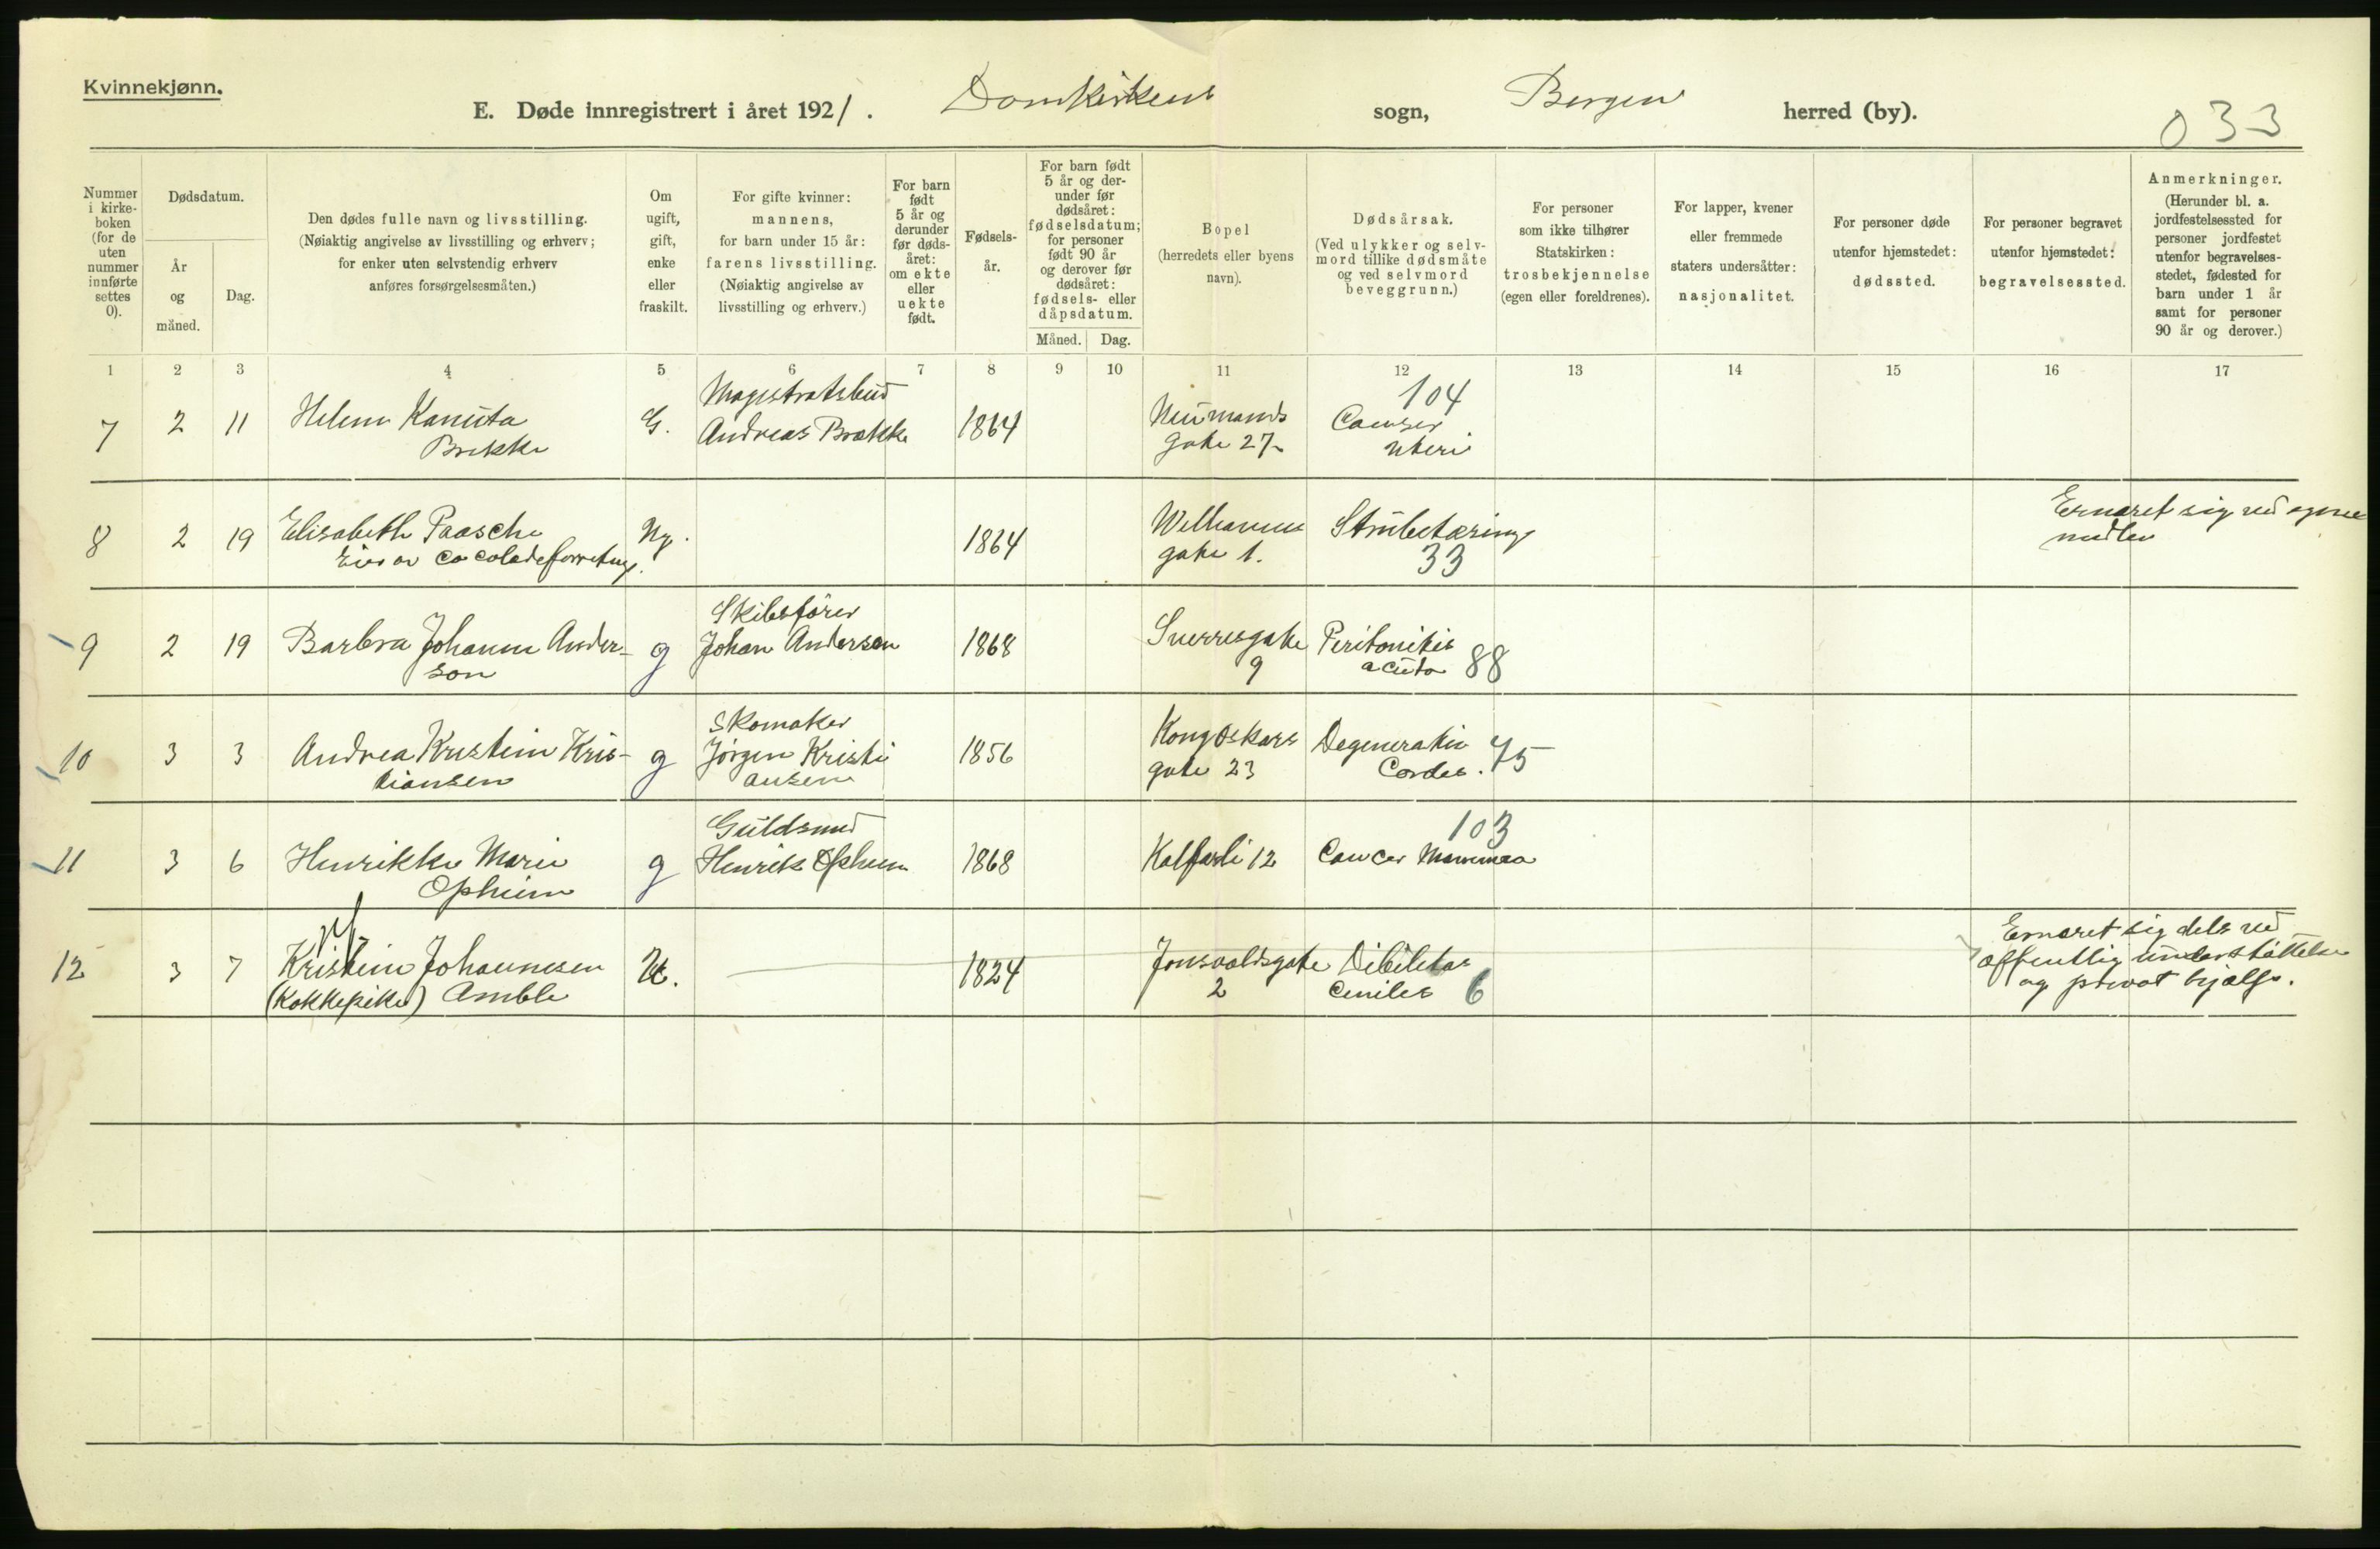 Kvinnekjønn.
E. Døde innregistrert i året 1921. Domkirkens sogn, Bergen herred (by).
033
Nummer i kirke- boken (for de uten nummer innførte settes 0).
Dødsdatum.
År og måned.
Dag.
Den dødes fulle navn og livsstilling.
(Nøiaktig angivelse av livsstilling og erhverv;
for enker uten selvstendig erhverv
anføres forsørgelsesmåten.)
Om ugift, gift, enke eller fraskilt.
For gifte kvinner:
mannens,
for barn under 15 år:
farens livsstilling.
(Nøiaktig angivelse av
livsstilling og erhverv.)
For barn født 5 år og derunder før døds- året: om ekte eller uekte født.
Fødsels- år.
For barn født 5 år og der- under før dødsåret: fødselsdatum; for personer født 90 år og derover før dødsåret: fødsels- eller dåpsdatum.
Måned. Dag.
Bopel
(herredets eller byens
navn).
Dødsårsak.
(Ved ulykker og selv-
mord tillike dødsmåte
og ved selvmord
beveggrunn.)
For personer
som ikke tilhører
Statskirken:
trosbekjennelse
(egen eller foreldrenes).
For lapper, kvener
eller fremmede
staters undersåtter:
nasjonalitet.
For personer døde
utenfor hjemstedet:
dødssted.
For personer begravet
utenfor hjemstedet:
begravelsessted.
Anmerkninger.
(Herunder bl. a.
jordfestelsessted for
personer jordfestet
utenfor begravelses-
stedet, fødested for
barn under 1 år
samt for personer
90 år og derover.)
1 2 3 4 5 6 7 8 9 10 11 12 13 14 15 16 17
Magistratsbud 104
7 2 11 Helene Kanuta G. Andreas Brekke 1864 Neumands Cancer
Brekke gate 27 uteri
8 2 19 Elisabeth Paasche Ug. 1864 Welhavens Strubetæring Ernæret sig ved egne
Eier av Cocoladeforretng. gate 1. 33 midler
Skibsfører
9 2 19 Barbra Johanne Ander- g Johan Andersen 1868 Sverresgate Peritonitis
son 9 acuta 88
Skomaker
10 3 3 Andrea Kristine Kris- g Jørgen Kristi 1856 Kong Oskars Degeneratio 75
tiansen ansen gate 23 Cordis.
Guldsmed 103
11 3 6 Henrikke Marie g Henrik Opheim 1868 Kalfarli 12 Cancer Mammae
Opheim
Ernæret sig dels ved
12 3 7 Kristine Johannesen U. 1824 Jonsvoldsgate Dibilitas offentlig understøttelse
(Kokkepike) Amble 2 Cenilis 6 og privat hjælp.